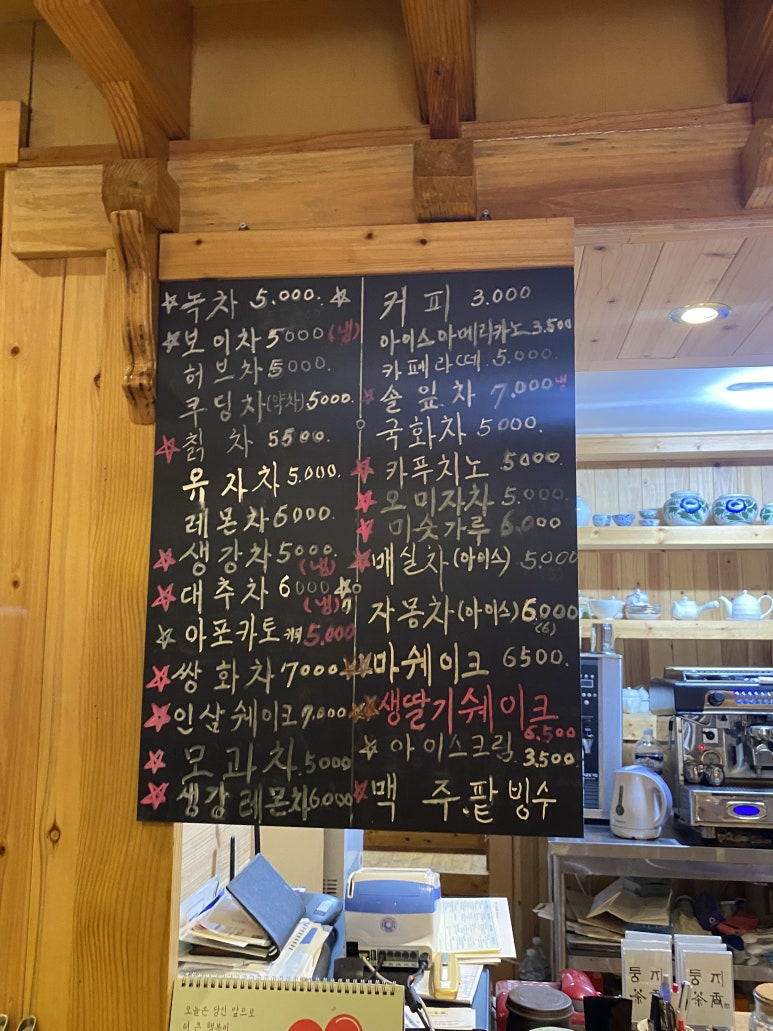 ☆녹차 5.000. ☆
☆보이차 5000 (냉)
허브차 5000.
쿠딩차(약차) 5000.
☆칡 차 5500.
유자차 5.000.
레몬차 6000.
☆생강차 5000. (냉)
☆대추차 6000 ☆ (냉)
☆아포카토 커피 5.000
☆쌍화차 7000
☆인삼쉐이크 7.000
☆모과차 5000
☆생강레몬차 6000
커피 3.000
아이스아메리카노 3.500
카페라떼 5.000.
☆솔잎차 7.000 냉
국화차 5000.
☆카푸치노 5000.
☆오미자차 5.000.
☆미숫가루 6.000
☆매실차(아이스) 5.000
자몽차(아이스) 6.000
(6)
☆마쉐이크 6500.
☆생딸기쉐이크
6.500
☆아이스크림 3.500
☆맥 주.팥빙수
오늘은 당신 앞으로